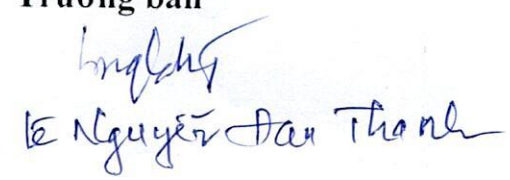 Trưởng ban
Lê Nguyễn Đan Thanh